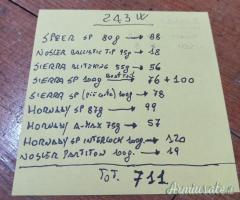 243 W
SPEER SP 80g → 88
NOSLER BALLISTIC TIP 95g → 18
SIERRA BLITZKING 55g → 56
SIERRA SP 100g BOAT TAIL → 76 + 100
SIERRA SP 100g → 78
HORNADY SP 87g → 99
HORNADY A-MAX 75g → 57
HORNADY SP INTERLOCK 100g → 120
NOSLER PARTITION 100g → 19
TOT. 711